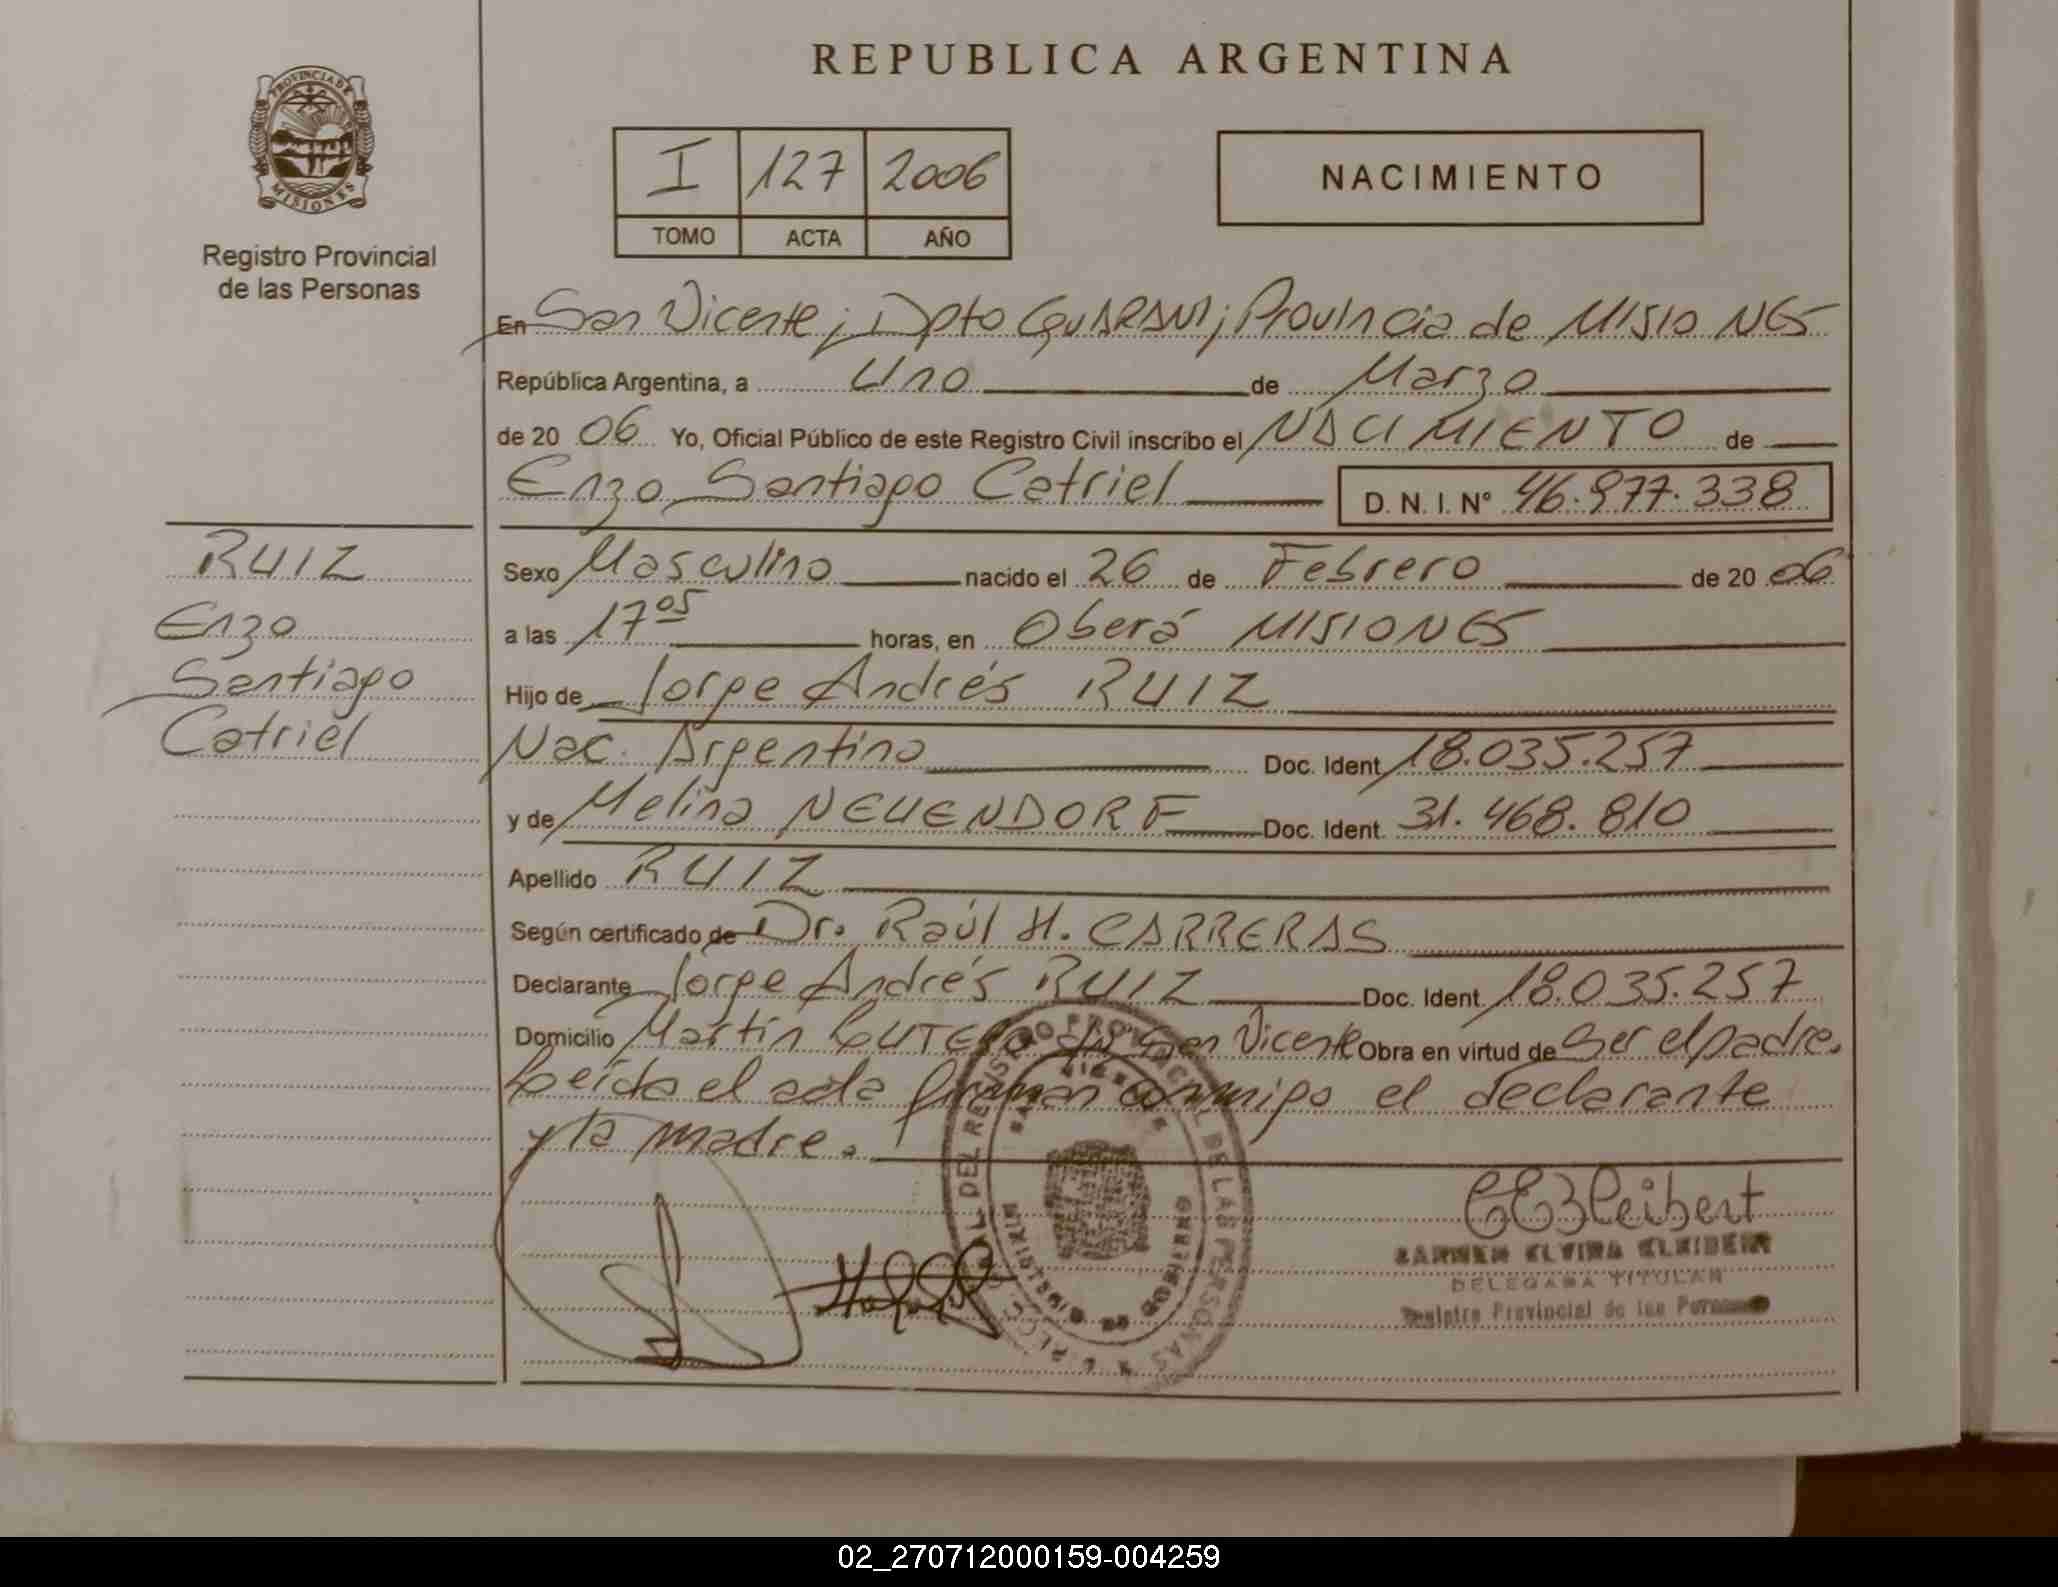 REPUBLICA ARGENTINA
PROVINCIA DE
MISIONES
Registro Provincial
de las Personas
I 127 2006
TOMO ACTA AÑO
NACIMIENTO
En San Vicente; Dpto Guarani; Provincia de MISIONES
República Argentina, a Uno de Marzo
de 20 06 Yo, Oficial Público de este Registro Civil inscribo el NACIMIENTO de
Enzo Santiago Catriel D. N. I. N° 46.977.338
RUIZ
Enzo
Santiago
Catriel
Sexo Masculino nacido el 26 de Febrero de 20 06
a las 17 05 horas, en Oberá MISIONES
Hijo de Jorge Andrés RUIZ
Nac. Argentina Doc. Ident 18.035.257
y de Melina NEUENDORF Doc. Ident. 31.468.810
Apellido RUIZ
Según certificado de Dr. Raúl H. CARRERAS
Declarante Jorge Andrés RUIZ Doc. Ident 18.035.257
Domicilio Martín San Vicente Obra en virtud de Ser el padre.
Leída el acta firman conmigo el declarante
y la madre.
DEL REGISTRO PROVINCIAL DE LAS PERSONAS
MINISTERIO DE GOBIERNO
CARMEN ELVIRA
DELEGADA TITULAR
Registro Provincial de las Personas
02_270712000159-004259